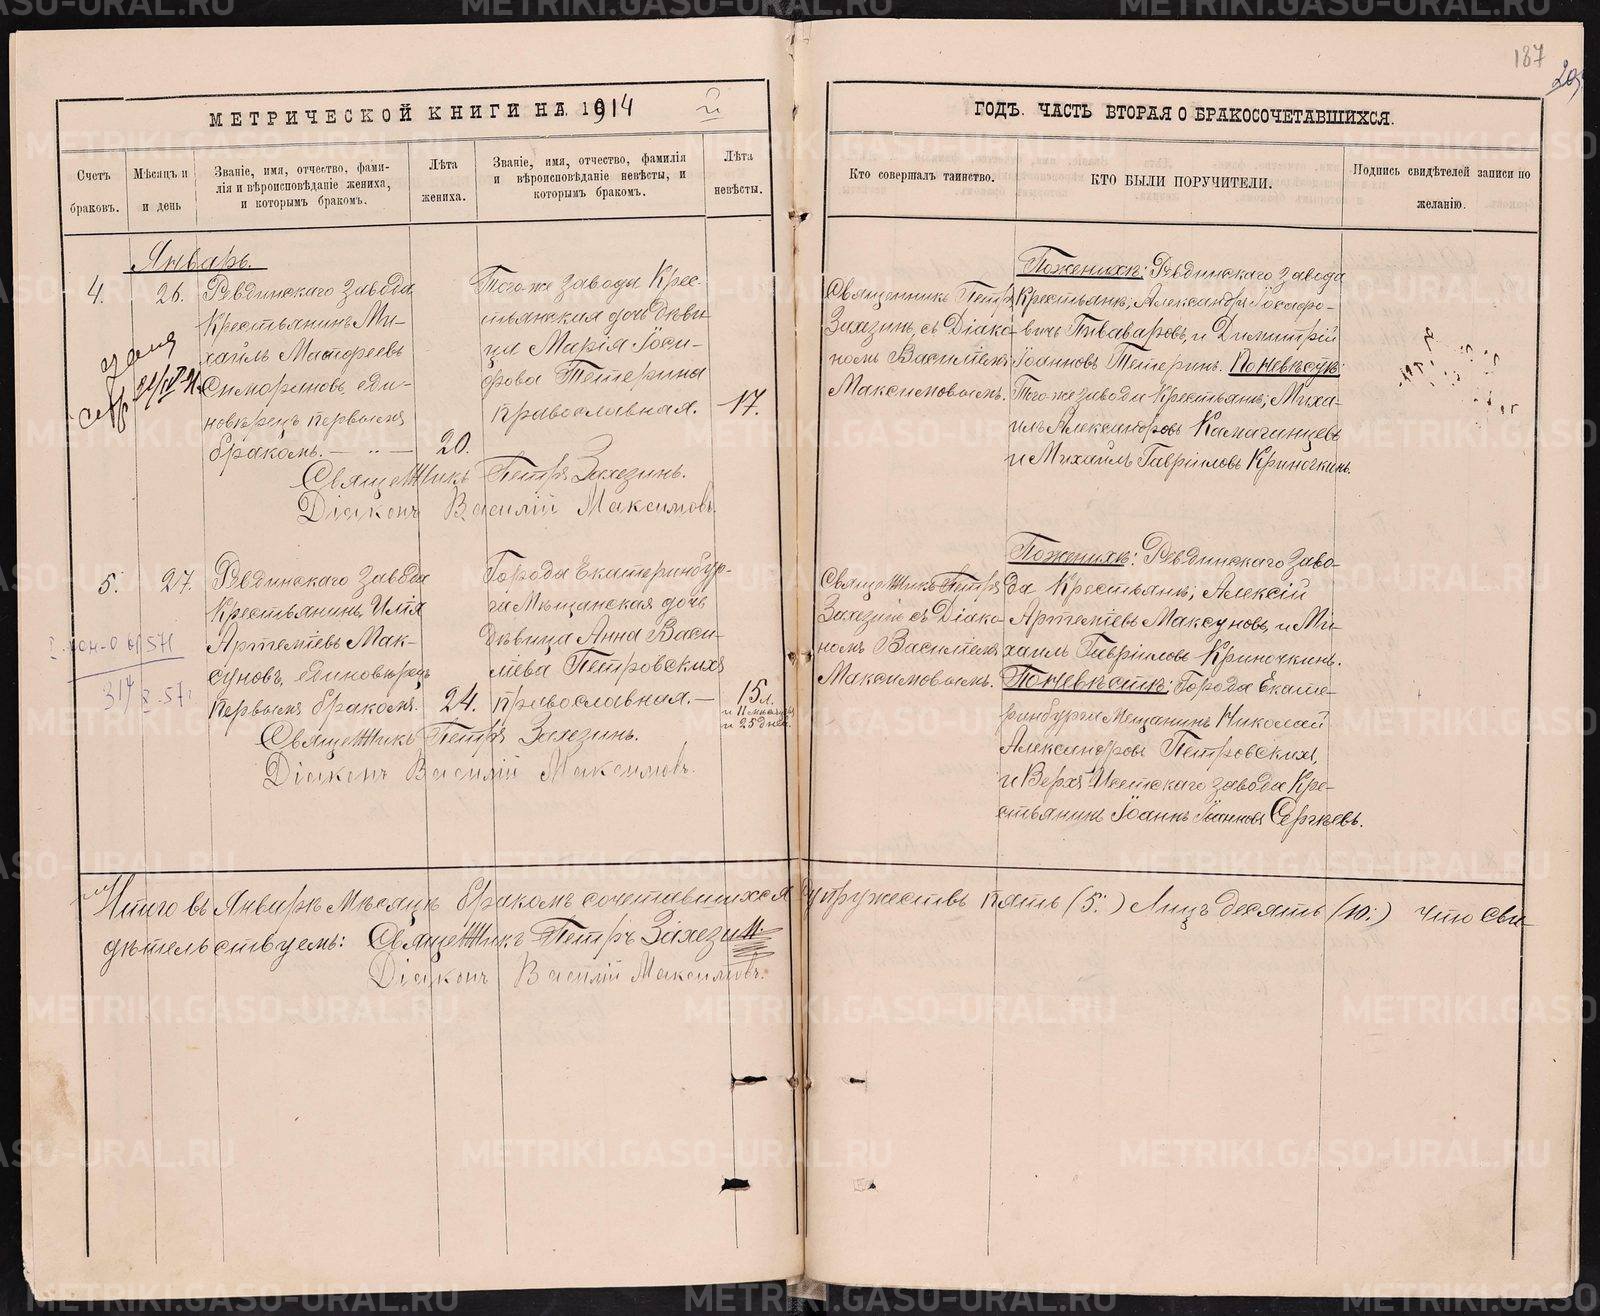 187
205
МЕТРИЧЕСКОЙ КНИГИ НА 1914
ГОДЪ. ЧАСТЬ ВТОРАЯ О БРАКОСОЧЕТАВШИХСЯ.
Счетъ браковъ.
Мѣсяцъ и и день
Званіе, имя, отчество, фами-
лія и вѣроисповѣданіе жениха,
и которымъ бракомъ.
Лѣта жениха.
Званіе, имя, отчество, фамилія
и вѣроисповѣданіе невѣсты, и
которымъ бракомъ.
Лѣта невѣсты.
Кто совершалъ таинство.
КТО БЫЛИ ПОРУЧИТЕЛИ.
Подпись свидѣтелей записи по
желанію.
Январь.
4.
26.
Ревдинскаго завода
Крестьянинъ Ми-
хаилъ Матѳеевъ
еди-
новѣрецъ первымъ
бракомъ. — „ —
20.
Того же завода Крес-
тьянская дочь дѣви-
ца Марія Іоси-
фова Тетерина
православная.
17.
Священникъ Петръ
съ Діако-
номъ Василіемъ
Максимовымъ.
По женихѣ: Ревдинскаго завода
Крестьяне; Александръ Іосафо-
вичъ Пивоваровъ, и Димитрій
Іоанновъ Тетеринъ. По невѣстѣ:
Того же завода Крестьяне; Миха-
илъ Александровъ Камаганцевъ
и Михаилъ Гавріиловъ Криночкинъ.
Священникъ Петръ
Діаконъ Василій Максимовъ.
5.
27.
Ревдинскаго завода
Крестьянинъ Илія
Артеміевъ Мак-
суновъ, единовѣрецъ
первымъ бракомъ.
24.
Города Екатеринбур-
га Мѣщанская дочь
дѣвица Анна Васи-
лѣева Петровскихъ
православная. —
15 л.
и 11 мѣсяцевъ
и 25 дней.
Священникъ Петръ
съ Діако-
номъ Василіемъ
Максимовымъ.
По женихѣ: Ревдинскаго заво-
да Крестьяне; Алексій
Артеміевъ Максуновъ, и Ми-
хаилъ Гавріиловъ Криночкинъ.
По невѣстѣ: Города Екате-
ринбурга Мещанинъ Николай
Александровъ Петровскихъ,
и Верхъ Исетскаго завода Кре-
стьянинъ Іоаннъ Іоанновъ Сергѣевъ.
Священникъ Петръ
Діаконъ Василій Максимовъ.
Итого въ Январѣ Мѣсяцѣ бракомъ сочетавшихся супружествъ пять (5.) Лицъ десять (10.) что сви-
дѣтельствуемъ: Священникъ Петръ
Діаконъ Василій Максимовъ.
METRIKI.GASO-URAL.RU